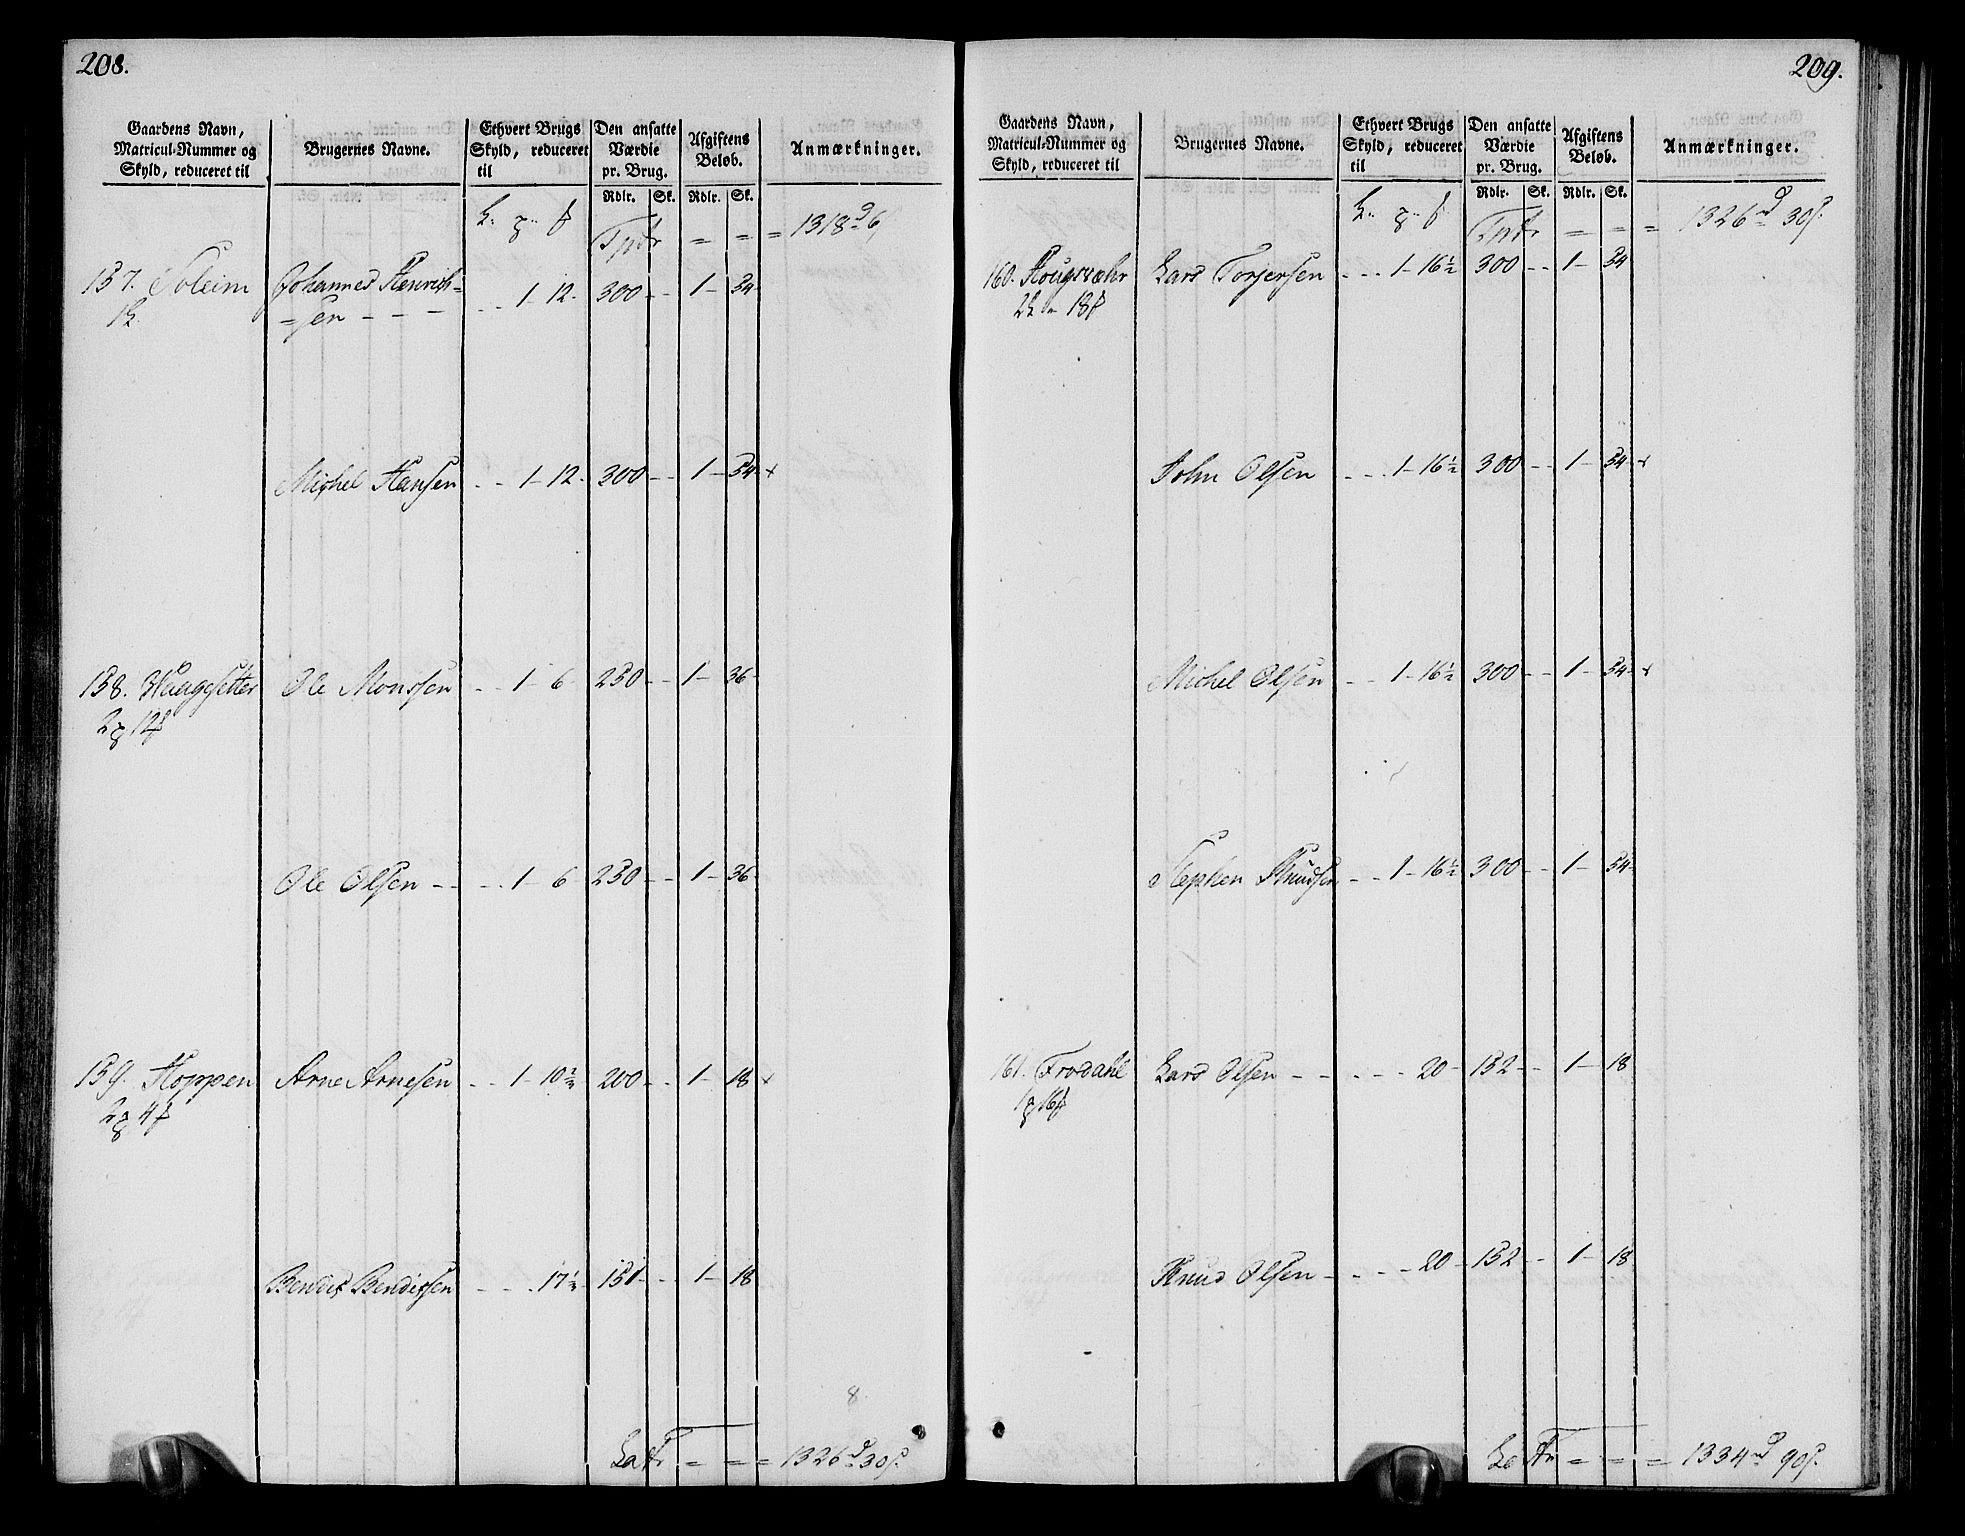 208.
Gaardens Navn,
Matricul-Nummer og
Skyld, reduceret til
Brugernes Navne.
Ethvert Brugs
Skyld, reduceret
til
Den ansatte
Værdie
pr. Brug.
Afgiftens
Beløb.
Anmærkninger.
Rdlr. Sk. Rdlr. Sk.
Tptr = = = 1318 d 6
157. Soleim Johannes Henrich= 1 - 12. 300 - - 1 - 54
=sen - - -
Michel Hansen - - 1 - 12. 300 - - 1 - 54 x
158. Waagesetter Ole Monssen - - 1 - 6 250 - - 1 - 36
Ole Olsen - - - - 1 - 6 250 - - 1 - 36
159. Hoppen Arne Arnesen - - 1 - 10½ 200 - - 1 - 18 x
Bendix Bendixsen - - - 17½ 151 - - 1 - 18
8
Latr = = = 1326 d 30 s.
209.
Gaardens Navn,
Matricul-Nummer og
Skyld, reduceret til
Brugernes Navne.
Ethvert Brugs
Skyld, reduceret
til
Den ansatte
Værdie
pr. Brug.
Afgiftens
Beløb.
Anmærkninger.
Rdlr. Sk. Rdlr. Sk.
Tptr = = = 1326 d 30 s.
160. Hougsvæhr Lars Torjersen - - - 1 - 16½ 300 - - 1 - 54
John Olsen - - - 1 - 16½ 300 - - 1 - 54 x
Michel Olsen - - 1 - 16½ 300 - - 1 - 54 x
Stephen Knudsen - - 1 - 16½ 300 - - 1 - 54
161. Frodahl Lars Olsen - - - - - 20 - 152 - - 1 - 18
Knud Olsen - - - - 20 - 152 - - 1 - 18
Latr = = = 1334 d 90 s.